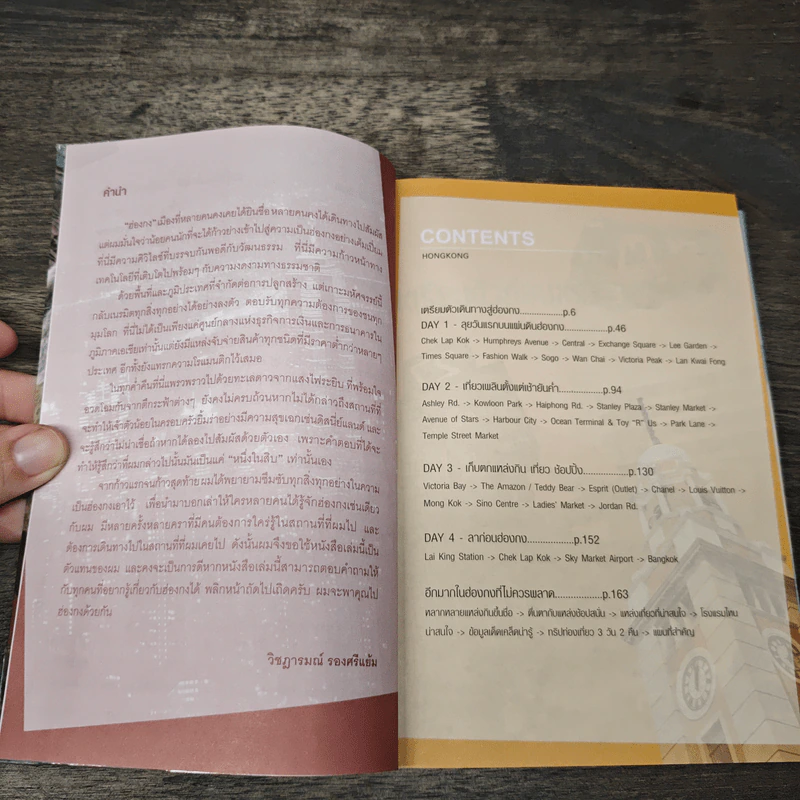 คำนำ
"ฮ่องกง" เมืองที่หลายคนคงเคยได้ยินชื่อ หลายคนคงได้เดินทางไปสัมผัส
แต่ผมมั่นใจว่าน้อยคนนักที่จะได้ก้าวย่างเข้าไปสู่ความเป็นฮ่องกงอย่างเต็มเปี่ยม
ที่นี่มีความศิวิไลซ์ที่บรรจบกันพอดีกับวัฒนธรรม ที่นี่มีความก้าวหน้าทาง
เทคโนโลยีที่เติบโตไปพร้อมๆ กับความงดงามทางธรรมชาติ
ด้วยพื้นที่และภูมิประเทศที่จำกัดต่อการปลูกสร้าง แต่เกาะมหัศจรรย์นี้
กลับเนรมิตทุกสิ่งทุกอย่างได้อย่างลงตัว ตอบรับทุกความต้องการของชนทุก
มุมโลก ที่นี่ไม่ได้เป็นเพียงแค่ศูนย์กลางแห่งธุรกิจการเงินและการธนาคารใน
ภูมิภาคเอเชียเท่านั้นแต่ยังมีแหล่งจับจ่ายสินค้าทุกชนิดที่มีราคาต่ำกว่าหลายๆ
ประเทศ อีกทั้งยังแทรกความโรแมนติกไว้เสมอ
ในทุกค่ำคืนที่นี่แพรวพราวไปด้วยทะเลดาวจากแสงไฟระยิบ ที่พร้อมใจ
อวดโฉมกันจากตึกระฟ้าต่างๆ ยังคงไม่ครบถ้วนหากไม่ได้กล่าวถึงสถานที่ที่
จะทำให้เจ้าตัวน้อยในครอบครัวยิ้มร่าอย่างมีความสุขเอกเช่นดิสนีย์แลนด์ และ
จะรู้สึกว่าไม่น่าเชื่อถ้าหากได้ลองไปสัมผัสด้วยตัวเอง เพราะคำตอบที่ได้จะ
ทำให้รู้สึกว่าที่ผมกล่าวไปนั้นมันเป็นแค่ "หนึ่งในสิบ" เท่านั้นเอง
จากก้าวแรกจนก้าวสุดท้าย ผมได้พยายามซึมซับทุกสิ่งทุกอย่างในความ
เป็นฮ่องกงเอาไว้ เพื่อนำมาบอกเล่าให้ใครหลายคนได้รู้จักฮ่องกงเช่นเดียว
กับผม มีหลายครั้งหลายคราที่มีคนต้องการใคร่รู้ในสถานที่ที่ผมไป และ
ต้องการเดินทางไปในสถานที่ที่ผมเคยไป ดังนั้นผมจึงขอใช้หนังสือเล่มนี้เป็น
ตัวแทนของผม และคงจะเป็นการดีหากหนังสือเล่มนี้สามารถตอบคำถามให้
กับทุกคนที่อยากรู้เกี่ยวกับฮ่องกงได้ พลิกหน้าถัดไปเถิดครับ ผมจะพาคุณไป
ฮ่องกงด้วยกัน
วิชฎารมณ์ รองศรีแย้ม
CONTENTS
HONGKONG
เตรียมตัวเดินทางสู่ฮ่องกง....................p.6
DAY 1 - ลุยวันแรกบนแผ่นดินฮ่องกง....................p.46
Chek Lap Kok -> Humphreys Avenue -> Central -> Exchange Square -> Lee Garden ->
Times Square -> Fashion Walk -> Sogo -> Wan Chai -> Victoria Peak -> Lan Kwai Fong
DAY 2 - เที่ยวเพลินตั้งแต่เช้ายันค่ำ....................p.94
Ashley Rd. -> Kowloon Park -> Haiphong Rd. -> Stanley Plaza -> Stanley Market ->
Avenue of Stars -> Harbour City -> Ocean Terminal & Toy "R" Us -> Park Lane ->
Temple Street Market
DAY 3 - เก็บตกแหล่งกิน เที่ยว ช้อปปิ้ง....................p.130
Victoria Bay -> The Amazon / Teddy Bear -> Esprit (Outlet) -> Chanel -> Louis Vuitton ->
Mong Kok -> Sino Centre -> Ladies' Market -> Jordan Rd.
DAY 4 - ลาก่อนฮ่องกง....................p.152
Lai King Station -> Chek Lap Kok -> Sky Market Airport -> Bangkok
อีกมากในฮ่องกงที่ไม่ควรพลาด....................p.163
หลากหลายแหล่งกินขึ้นชื่อ -> ตื่นตากับแหล่งช้อปสนั่น -> แหล่งเที่ยวที่น่าสนใจ -> โรงแรมไหน
น่าสนใจ -> ข้อมูลเด็ดเคล็ดน่ารู้ -> ทริปท่องเที่ยว 3 วัน 2 คืน -> แผนที่สำคัญ